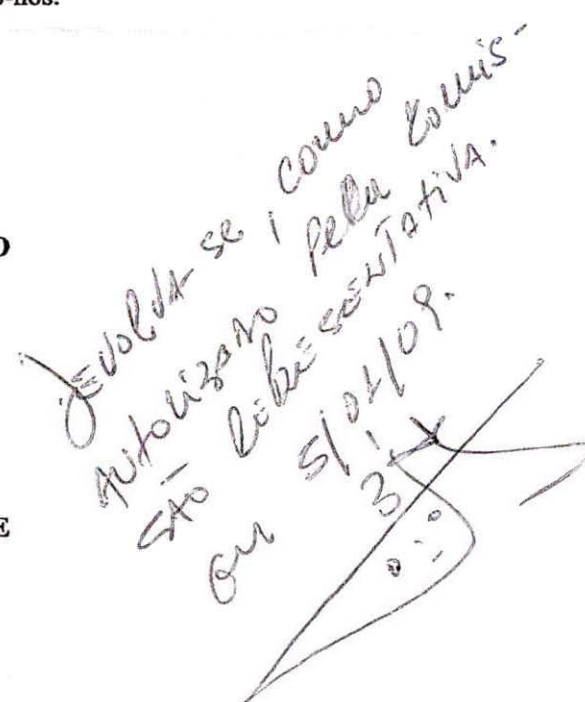 o-nos.
Devolva se, como
autorizado pela Comis-
são Representativa.
Em 5/01/09.
O
E